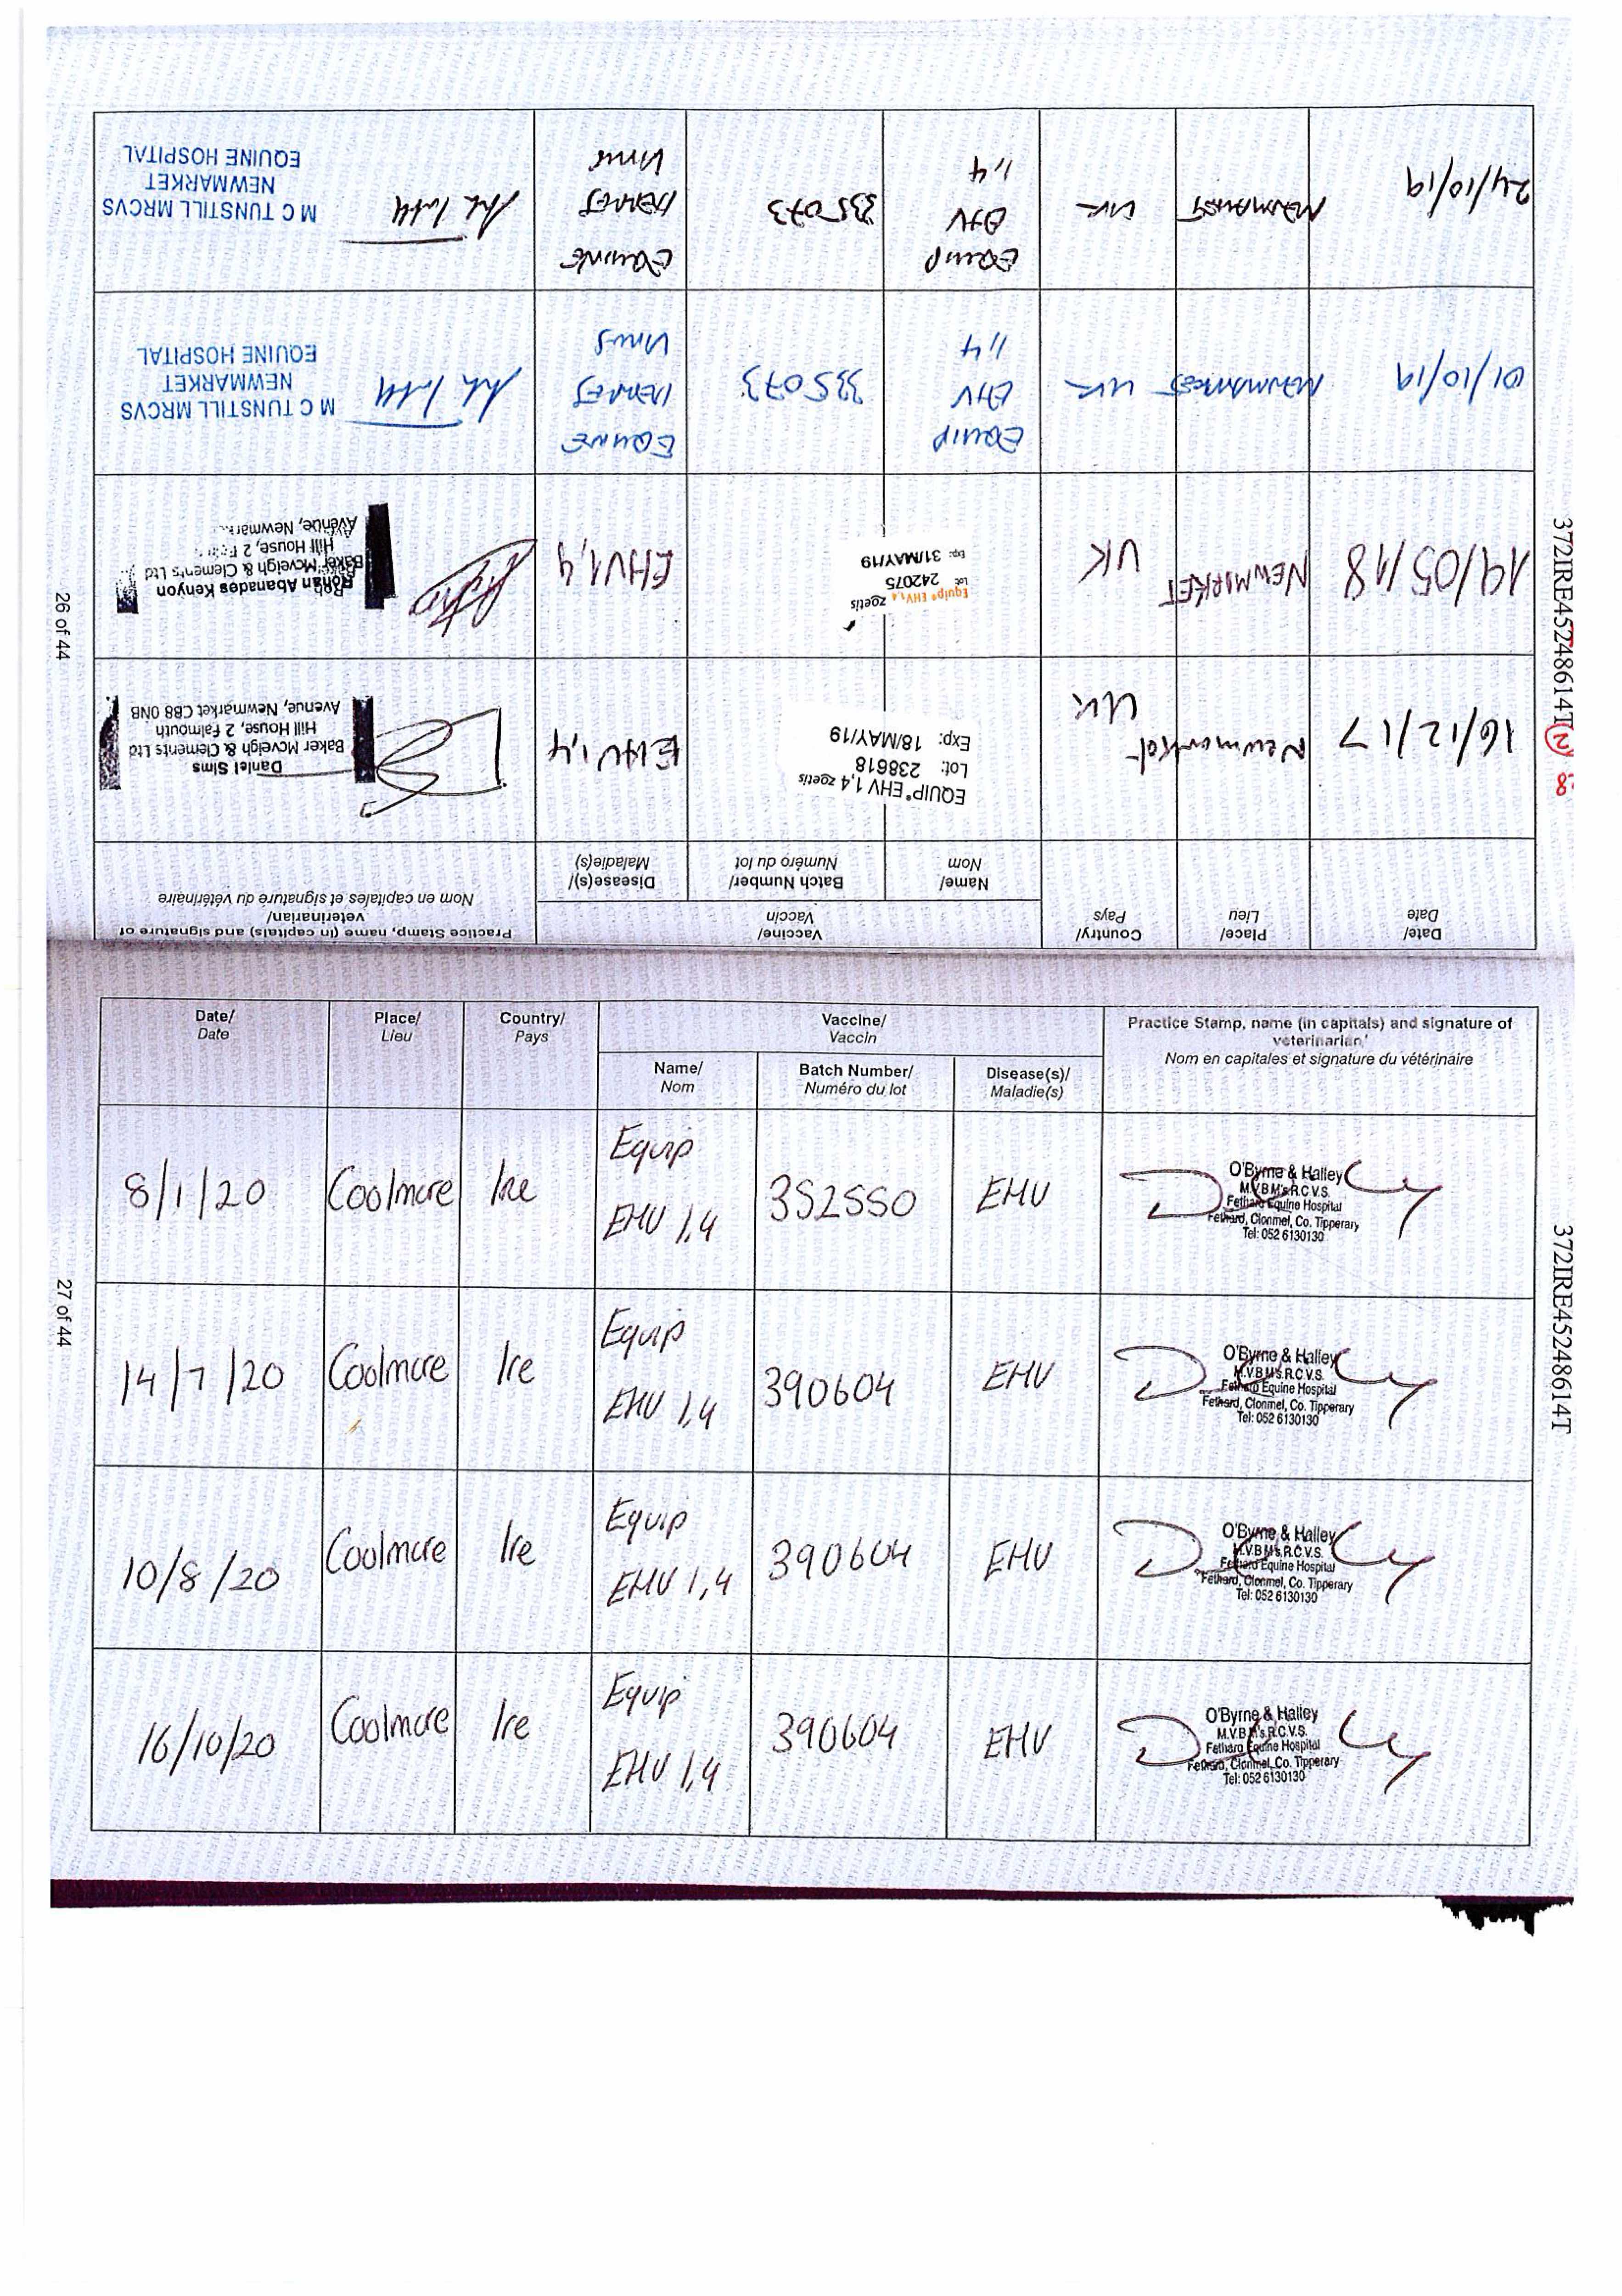 372IRE45248614T
N
8
26 of 44
Date/
Date
Place/
Lieu
Country/
Pays
Vaccine/
Vaccin
Name/
Nom
Batch Number/
Numéro du lot
Disease(s)/
Maladie(s)
Practice Stamp, name (in capitals) and signature of
veterinarian/
Nom en capitales et signature du vétérinaire
16/12/17
Newmarket
UK
EQUIP® EHV 1,4 zoetis
Lot: 238618
Exp: 18/MAY/19
EHV1,4
Daniel Sims
Baker Mcveigh & Clements Ltd
Hill House, 2 Falmouth
Avenue, Newmarket CB8 0NB
19/05/18
NEWMARKET
UK
Equip® EHV1,4 zoetis
Lot: 242075
Exp: 31/MAY/19
EHV1,4
Rohan Abanades Kenyon
Baker Mcveigh & Clements Ltd
Hill House, 2
Avenue, Newmar
01/10/19
NEWMARKET
UK
EQUIP
EHV
1,4
335073
EQUINE
HERPES
VIRUS
M C TUNSTILL MRCVS
NEWMARKET
EQUINE HOSPITAL
24/10/19
NEWMARKET
UK
EQUIP
EHV
1,4
335073
EQUINE
HERPES
VIRUS
M C TUNSTILL MRCVS
NEWMARKET
EQUINE HOSPITAL
372IRE45248614T
27 of 44
Date/
Date
Place/
Lieu
Country/
Pays
Vaccine/
Vaccin
Name/
Nom
Batch Number/
Numéro du lot
Disease(s)/
Maladie(s)
Practice Stamp, name (in capitals) and signature of
veterinarian/
Nom en capitales et signature du vétérinaire
8/1/20
Coolmore
Ire
Equip
EHV 1,4
352550
EHV
O'Byrne & Halley
M.V.B M's.R.C.V.S.
Fethard Equine Hospital
Fethard, Clonmel, Co. Tipperary
Tel: 052 6130130
14/7/20
Coolmore
Ire
Equip
EHV 1,4
390604
EHV
O'Byrne & Halley
M.V.B M's.R.C.V.S.
Fethard Equine Hospital
Fethard, Clonmel, Co. Tipperary
Tel: 052 6130130
10/8/20
Coolmore
Ire
Equip
EHV 1,4
390604
EHV
O'Byrne & Halley
M.V.B M's.R.C.V.S.
Fethard Equine Hospital
Fethard, Clonmel, Co. Tipperary
Tel: 052 6130130
16/10/20
Coolmore
Ire
Equip
EHV 1,4
390604
EHV
O'Byrne & Halley
M.V.B M's.R.C.V.S.
Fethard Equine Hospital
Fethard, Clonmel, Co. Tipperary
Tel: 052 6130130